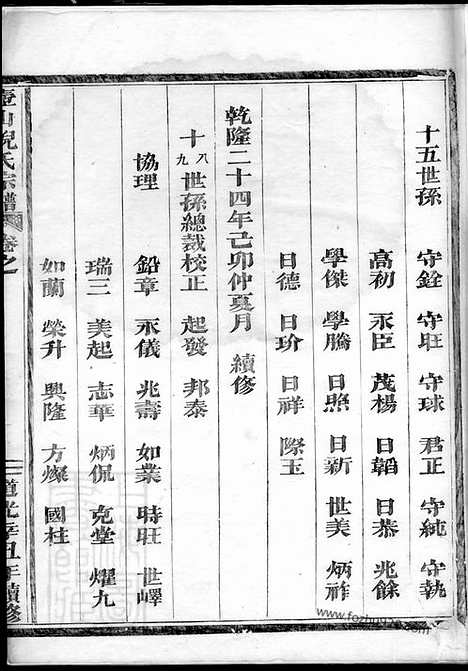 十五世孫 守銓 守旺 守球 君正 守純 守執
高初 永臣 茂楊 日韜 日恭 兆餘
學傑 學騰 日照 日新 世美 炳祚
日德 日玠 日祥 際玉
乾隆二十四年己卯仲夏月 續修
十八九世孫總裁校正 起發 邦泰
協理 鉛章 永儀 兆壽 如業 時旺 世嶧
瑞三 美起 志華 炳侃 克堂 燿九
如蘭 榮升 興隆 方燦 國柱
壺山倪氏宗譜 卷之一
道光辛丑年續修